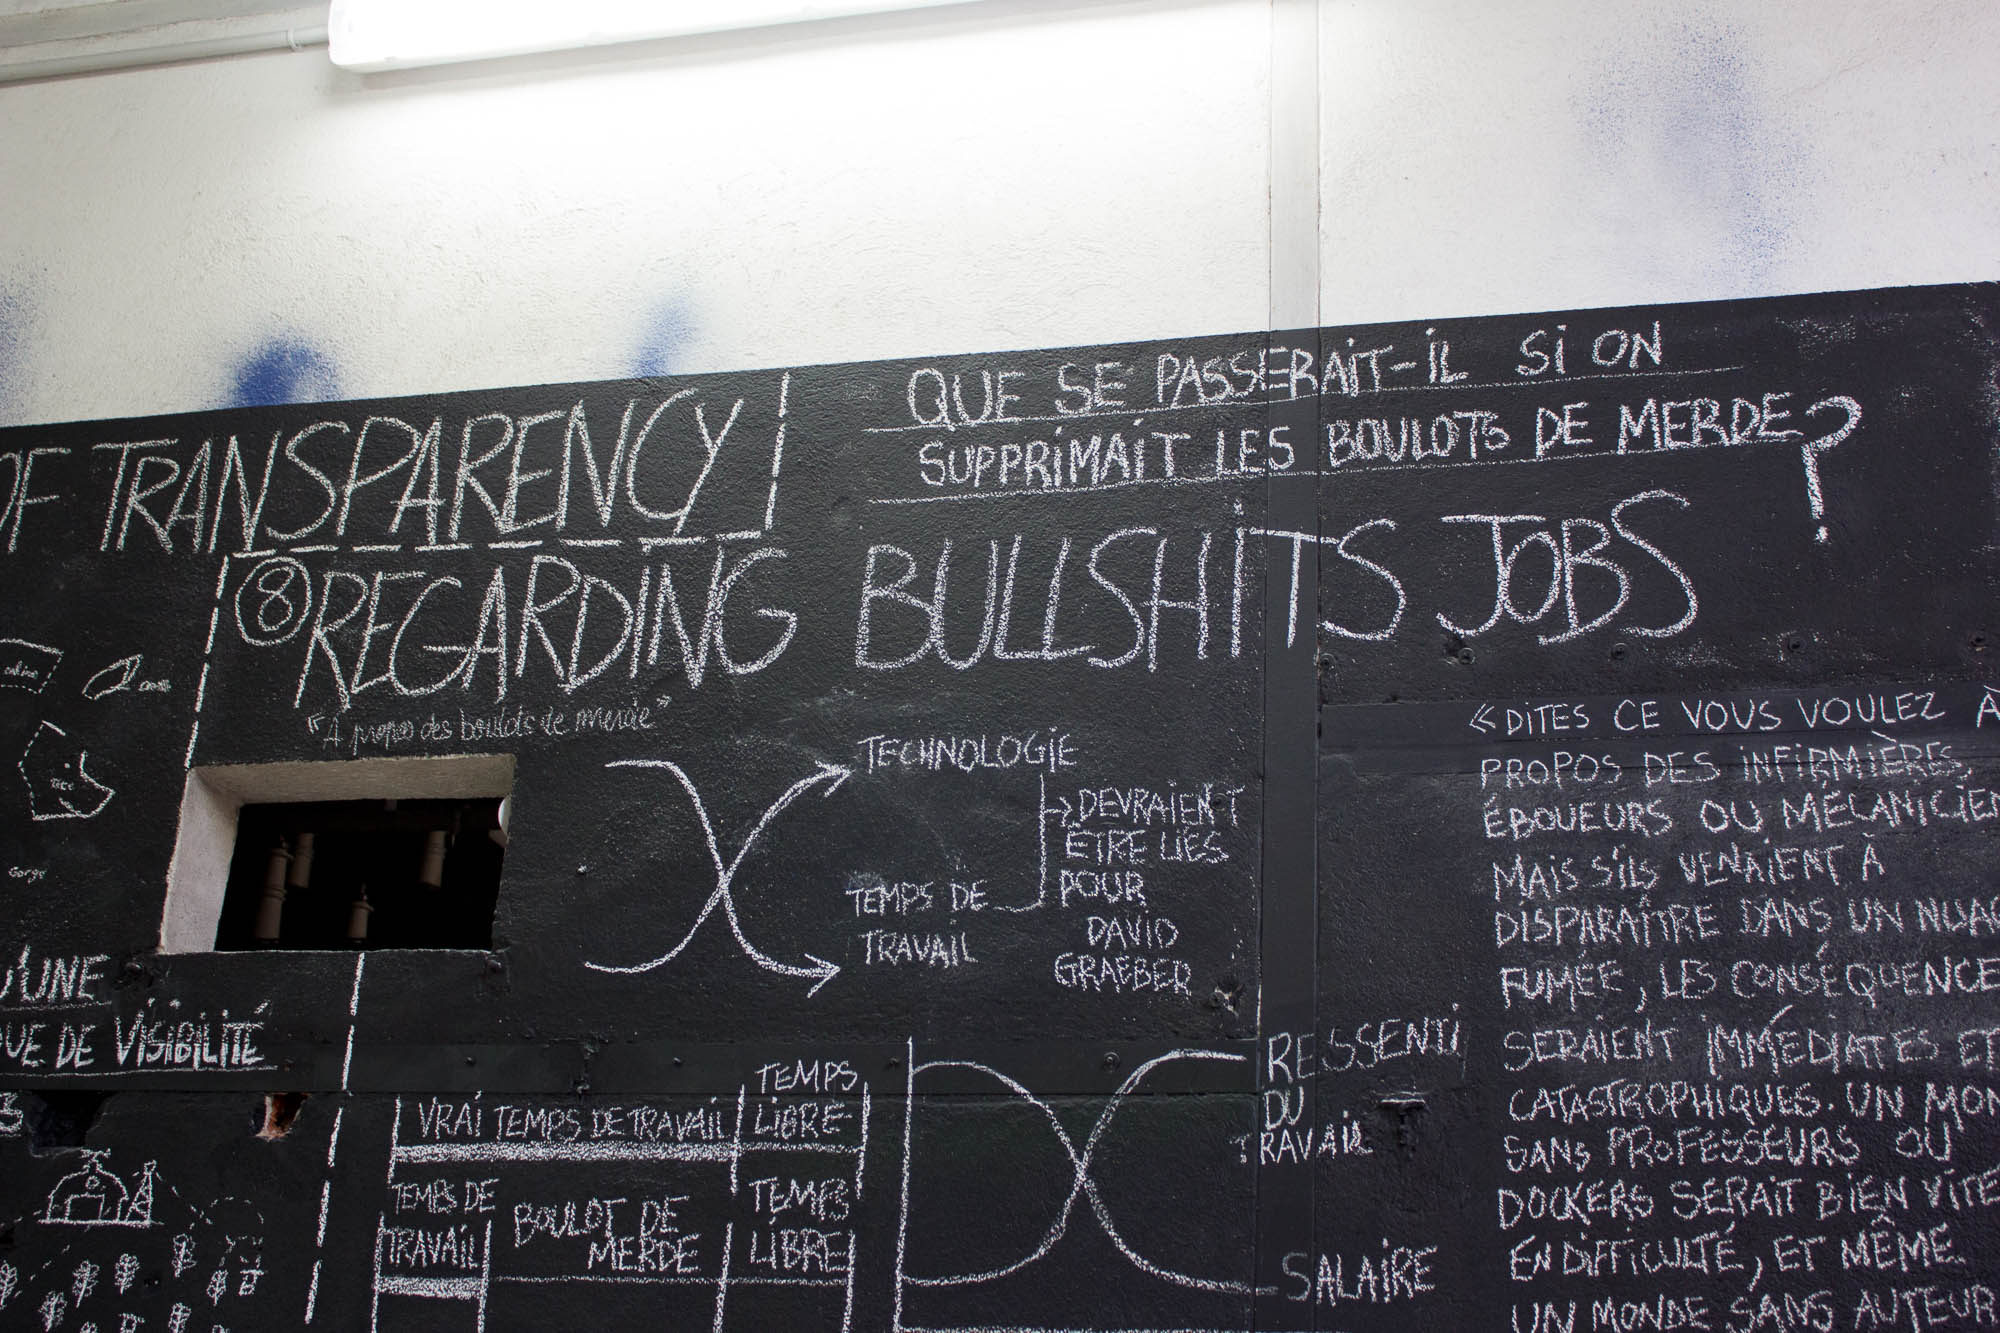 OF TRANSPARENCY
QUE SE PASSERAIT-IL SI ON
SUPPRIMAIT LES BOULOTS DE MERDE ?
8 REGARDING BULLSHITS JOBS
"A propos des boulots de merde"
TECHNOLOGIE
DEVRAIENT
ÊTRE LIÉS
POUR
DAVID
GRAEBER
TEMPS DE
TRAVAIL
« DITES CE VOUS VOULEZ À
PROPOS DES INFIRMIÈRES,
ÉBOUEURS OU MÉCANICIEN
MAIS S'ILS VENAIENT À
DISPARAÎTRE DANS UN NUAG
FUMÉE, LES CONSÉQUENCE
SERAIENT IMMÉDIATES ET
CATASTROPHIQUES. UN MON
SANS PROFESSEURS OU
DOCKERS SERAIT BIEN VITE
EN DIFFICULTÉ, ET MÊME
UN MONDE SANS AUTEUR
U'UNE
QUE DE VISIBILITÉ
3
VRAI TEMPS DE TRAVAIL
TEMPS
LIBRE
TEMPS DE
TRAVAIL
BOULOT DE
MERDE
TEMPS
LIBRE
RESSENTI
DU
TRAVAIL
SALAIRE